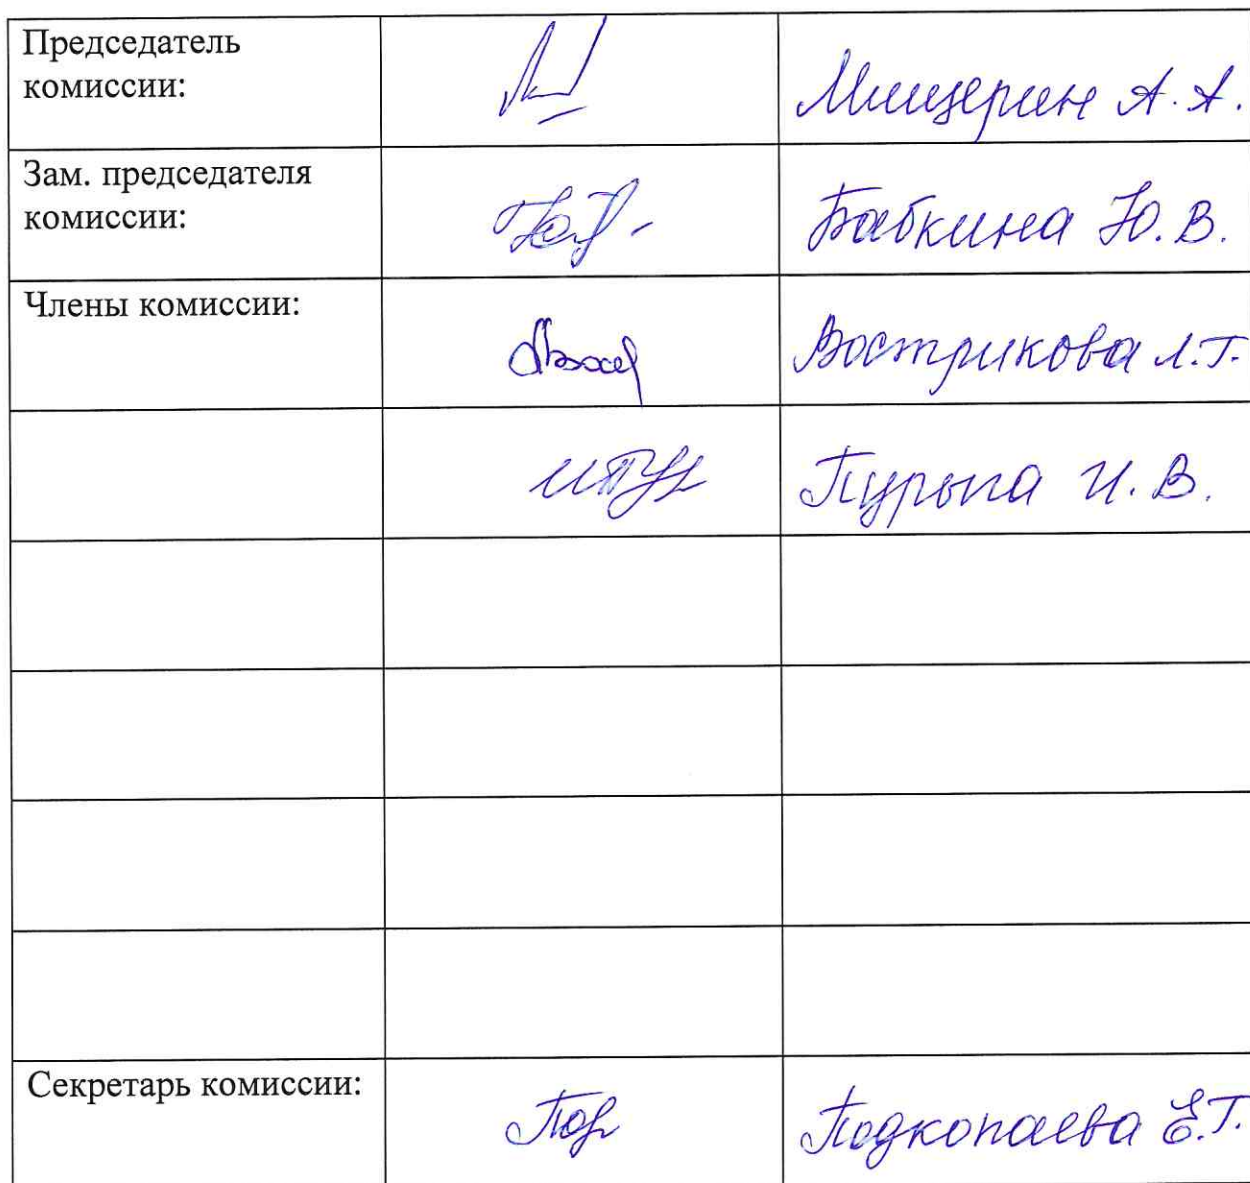 Председатель
комиссии:
Мищерин А. А.
Зам. председателя
комиссии:
Бабкина Ю. В.
Члены комиссии:
Вострикова Л. Г.
Пурыга И. В.
Секретарь комиссии:
Подкопаева Е. Г.